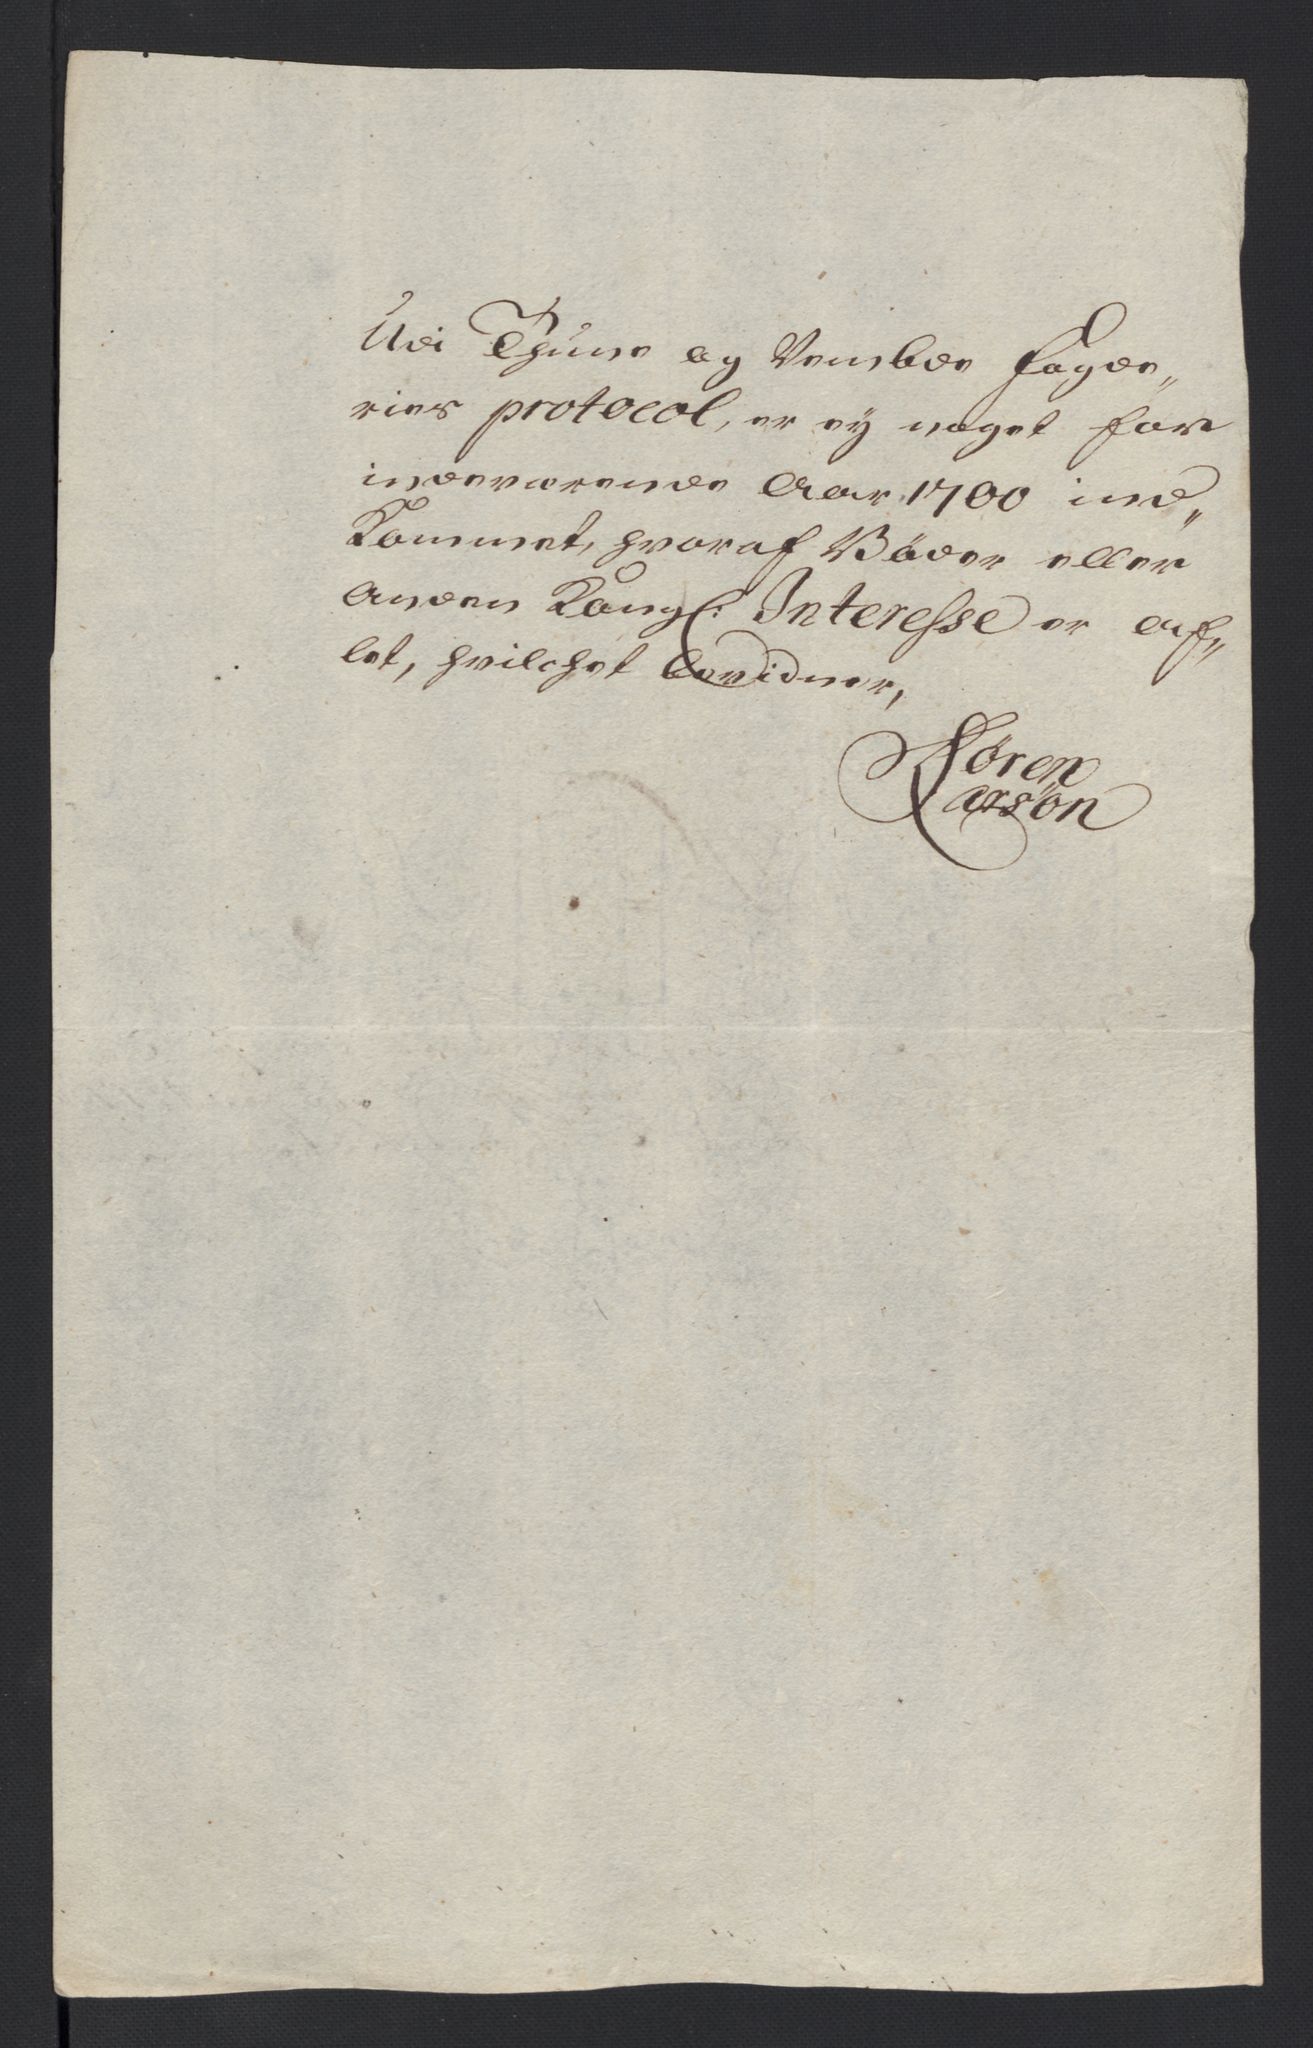 Udi Thune og Vembde Fogde„
ries protocol, er ey noget for
indeværende Aar 1700 ind„
Kommet, hvoraf Böder eller
anden Kongl: Interesse er af„
let, hvilchet bevidner,
Sören
Larsön